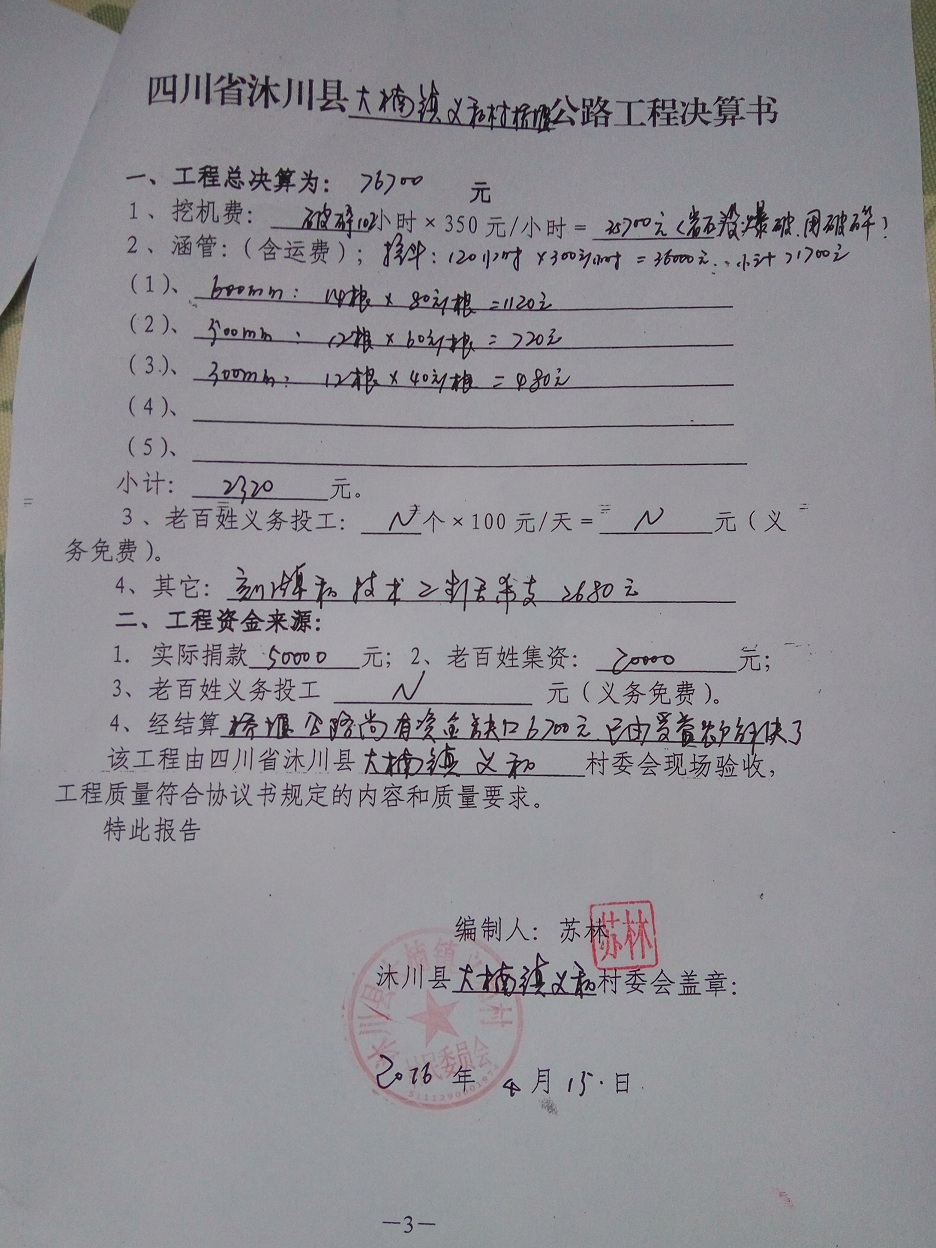 四川省沐川县大楠镇义和村桥堰公路工程决算书
一、工程总决算为: 76700 元
1、挖机费: 破碎102小时×350元/小时= 35700元(岩石没爆破.用破碎)
2、涵管:(含运费); 挖斗:120小时×300元/小时=36000元. 小计71700元
(1)、600mm: 14根×80元/根=1120元
(2)、500mm: 12根×60元/根=720元
(3)、300mm: 12根×40元/根=480元
(4)、
(5)、
小计: 2320 元。
3、老百姓义务投工: N 个×100元/天= N 元(义
务免费)。
4、其它: 和技术 2680元
二、工程资金来源:
1. 实际捐款 50000 元; 2、老百姓集资: 20000 元;
3、老百姓义务投工 N 元(义务免费)。
4、经结算桥堰公路尚有资金缺口6700元.已由受益农户解决了
该工程由四川省沐川县大楠镇义和 村委会现场验收,
工程质量符合协议书规定的内容和质量要求。
特此报告
编制人: 苏林
苏林
沐川县大楠镇义和村委会盖章:
2016年 4月 15.日
—3—